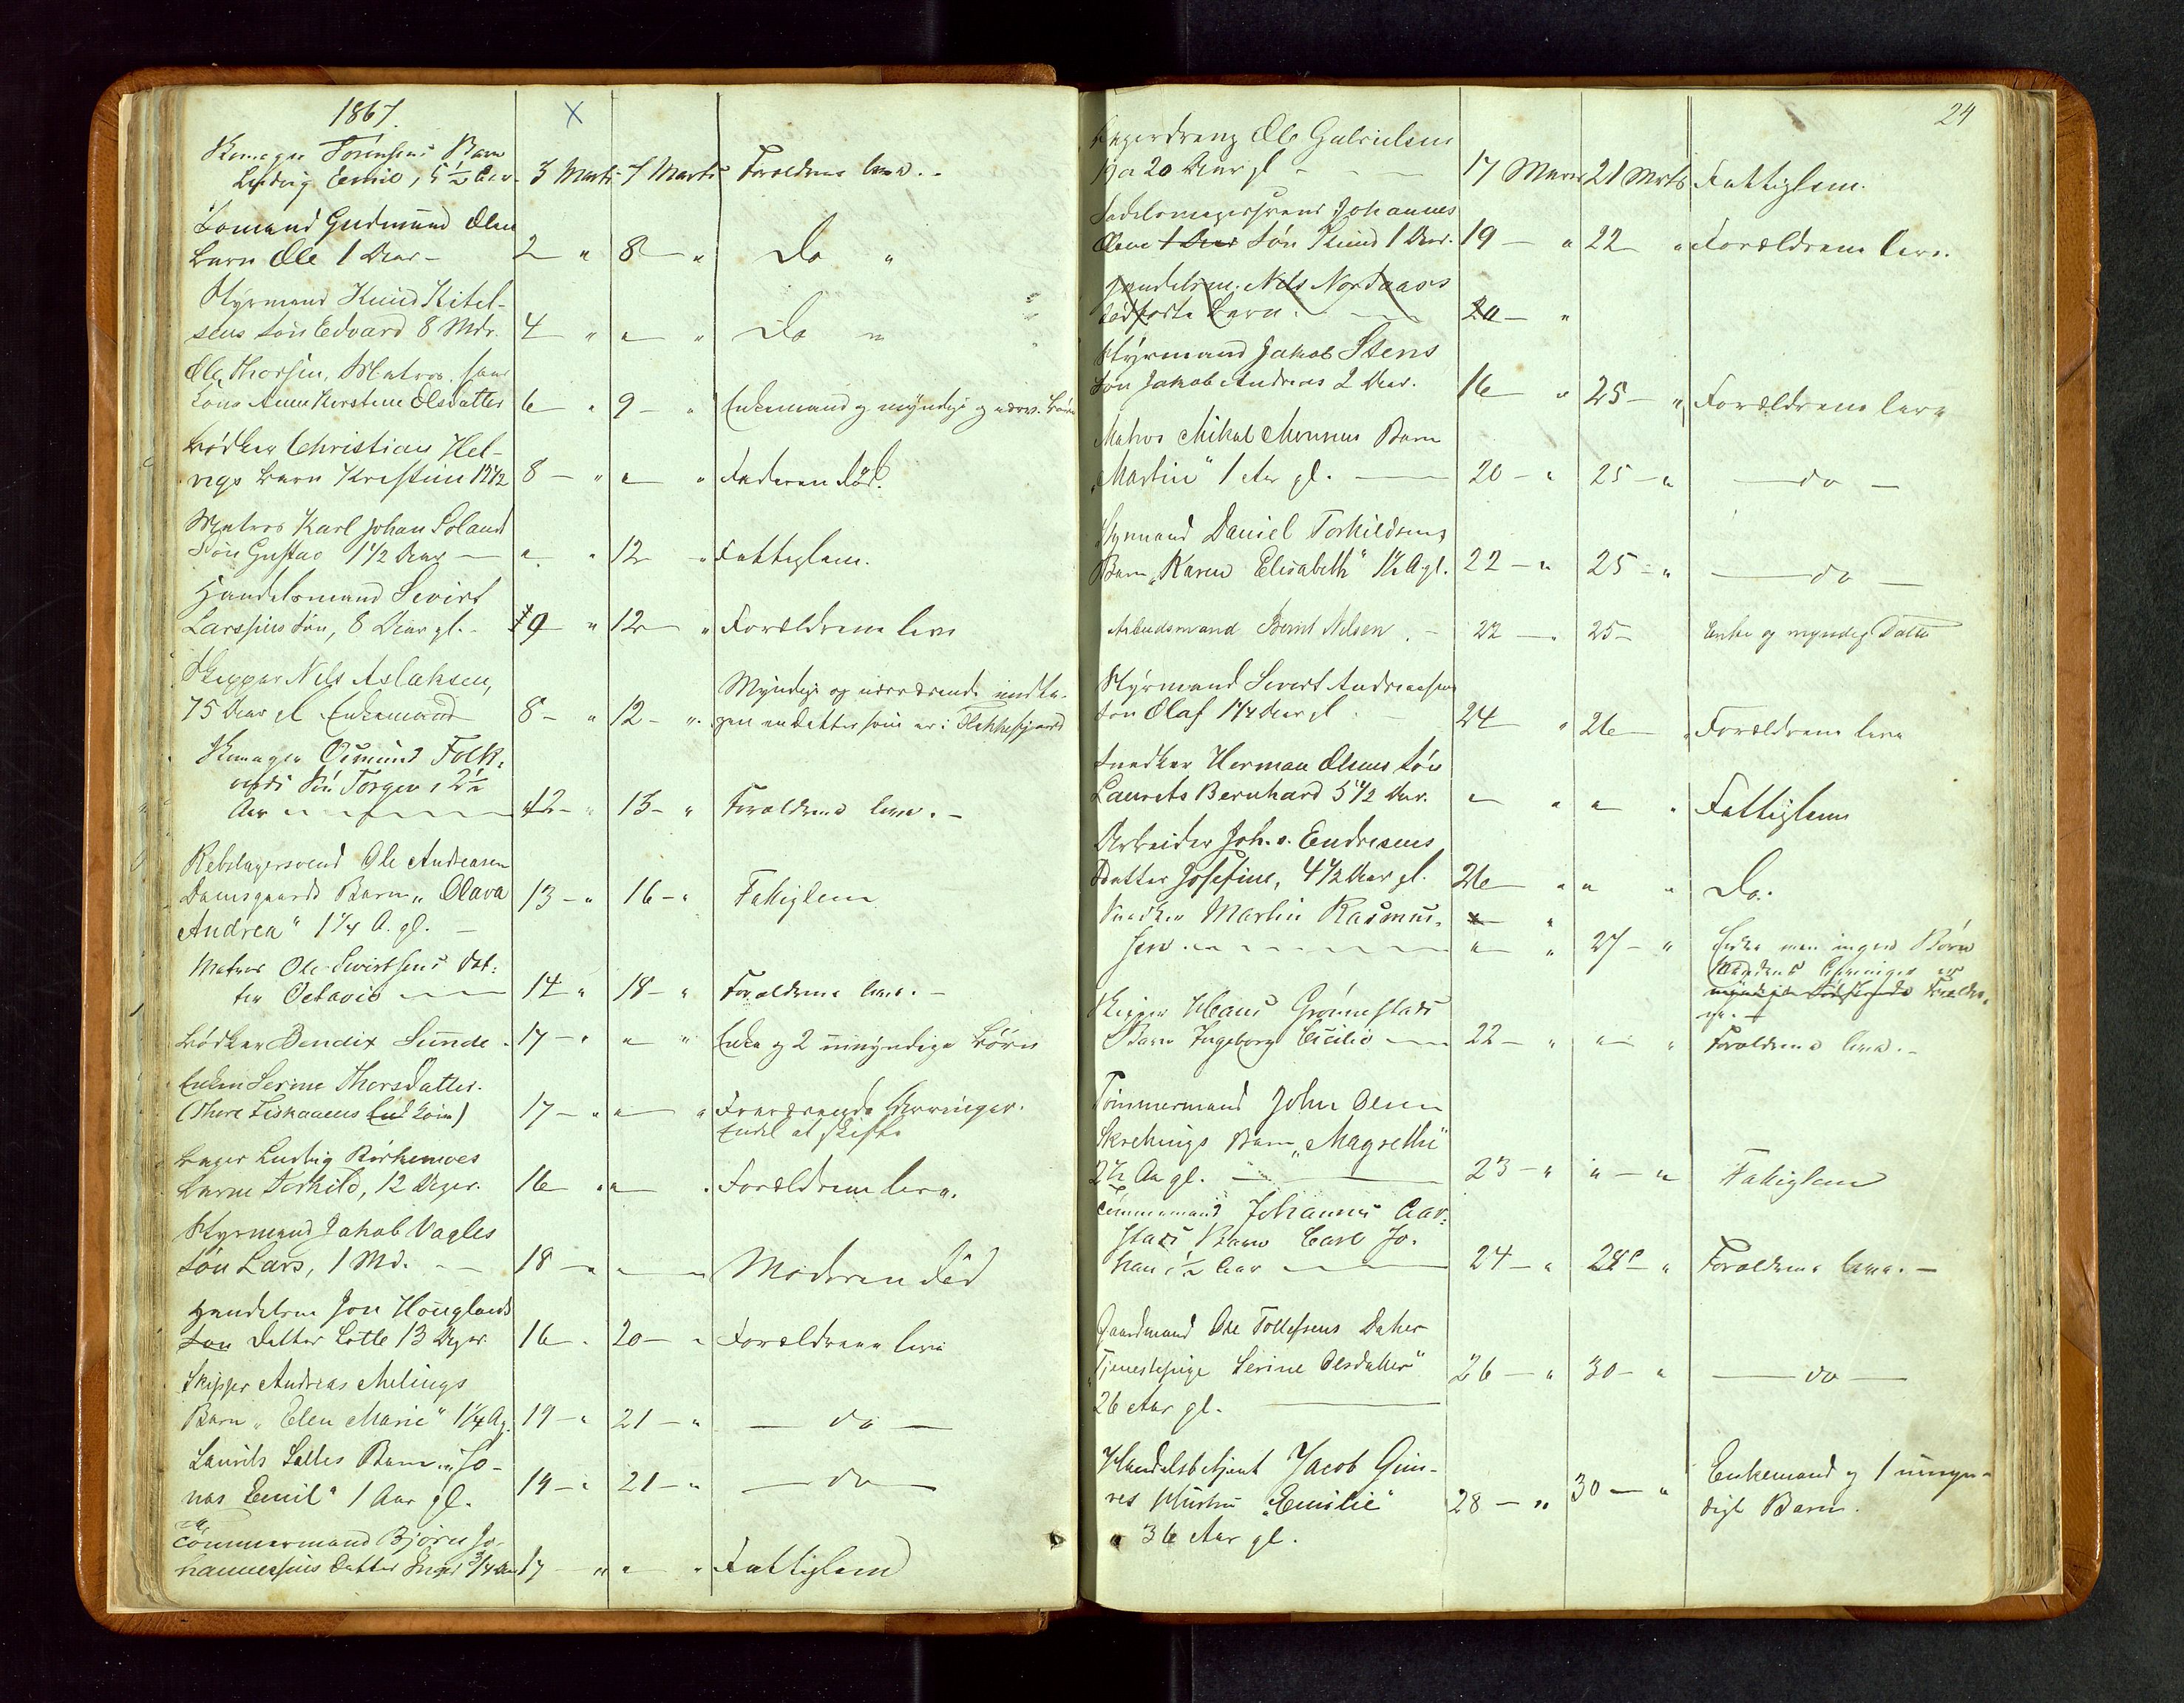 1867.
X
Skomager Sörensens Barn
Ludvig Emil, 5 1/2 Aar 3 Marts 7 Marts Forældrene leve.
Lomand Gudmund Olsen
Barn Ole 1 Aar - 2 " 8 " Do "
Styrmand Knud Kitel-
sens Søn Edvard 8 Mdr. 4 " " " Do "
Ole Thorsen, Matros, hans
Kone Anne Kirstine Olsdatter 6 " 9 - " Enkemand og myndige og nærv. Børn
Bødker Christian Hel-
vigs Barn Kristine 1 1/2 8 - " " " Faderen død.
Matros Karl Johan Solands
Søn Gustav 1 1/2 Aar - " " 12 " Fattiglem.
Handelsmand Sivert
Larssens Søn, 8 Aar gl. - 10 " 12 " Forældrene leve
Skipper Nils Aslaksen,
75 Aar gl Enkemand 8 - " 12 - " Myndige og nærværende undta-
gen en Datter som er i Flekkefjord
Skomager Osmund Folk-
Søn Torger, 2 1/2
Aar 12 - " 15 - " Forældrene leve. -
Rebslagersvend Ole Andreasen
Damsgaards Barn „Olava
Andrea" 1 1/4 A. gl. - 13 - " 16 - " Fattiglem
Matros Ole Sivertsens Dat-
ter Octavia 14 " 18 - " Forældrene leve. -
Bødker Bendix Sunde. 17 - " " " Enke og 2 umyndige Børn
Enken Serine Thorsdatter.
(Thore Kone) 17 - " " " Fraværende Arvinger.
Endel at skifte
Bager Ludvig Birkemoes
Barn Torkild, 12 Dage. 16 " " " Forældrene leve.
Styrmand Jakob Vagles
Søn Lars, 1 Md. - - 18 - " " " Moderen død
Handelsm Jon Houglands
Søn Datter Lotte 13 Dage 16 - " 20 - " Forældrene leve
Skipper Andreas Melings
Barn „Elen Marie" 1 1/4 A g. 19 - " 21 - " - do -
Laurits Salles Barn „Jo-
nas Emil" 1 Aar gl. 19 - " 21 - " - do -
Tømmermand Bjørn Jo-
hannessens Datter 3/4 Aar 17 " " " Fattiglem
24
Bagerdreng Ole Gabrielsen
19 a 20 Aar gl - - - 17 Marts 21 Mrts Fattiglem.
Sadelmagersvend Johannes
Olsens 1 Aar Søn Knud 1 Aar. 19 - " 22 " Forældrene leve.
Handelsm. Nils Nordaas
dødfødte Barn. - 20 - "
Styrmand Jakob Stens
Søn Jakob Andreas 2 Aar. 16 " 25 - " Forældrene leve
Matros Mikal Monsens Barn
„Martin" 1 Aar gl. - 20 - " 25 - " - do -
Styrmand Daniel Torkildsens
Barn „Karen Elisabeth" 1 1/2 A gl. 22 - " 25 - " - do -
Arbeidsmand Bernt Nilsen. - 22 - " 25 - Enke og myndig Datter
Styrmand Sivert Andreassens
Søn Olaf 1 1/4 Aar gl 24 " 26 - " Forældrene leve
Snedker Herman Olsens Søn
Laurits Bernhard 5 1/2 Aar. " " " " Fattiglem
Arbeider Joh. s. Endresens
Datter Josefine, 4 1/2 Aar gl. 26 " " " Do.
Snedker Martin Rasmus-
sen. " " 27 - " Enke men ingen Børn
Mandens Arvinger er
myndige Foreldre.
Skipper Claus Grønnestads
Barn Ingeborg Cicilie 22 - " " " Forældrene leve. -
Tømmermand John Olsen
Skretings Barn „Magrethe"
2 1/2 Aa gl. - 23 - " " - " Fattiglem
Tømmermand Johannes Aar-
stads Barn Carl Jo-
han, 1/2 Aar 24 - " 28 " Forældrene leve. -
Gaardmand Ole Tollefsens Datter
„Tjenestepige Serine Olsdatter"
26 Aar gl. 26 - " 30 - " - do -
Handelsbetjent Jacob Gim-
res Hustru „Emilie" 28 - " 30 - " Enkemand og 1 umyn-
36 Aar gl. digt Barn.